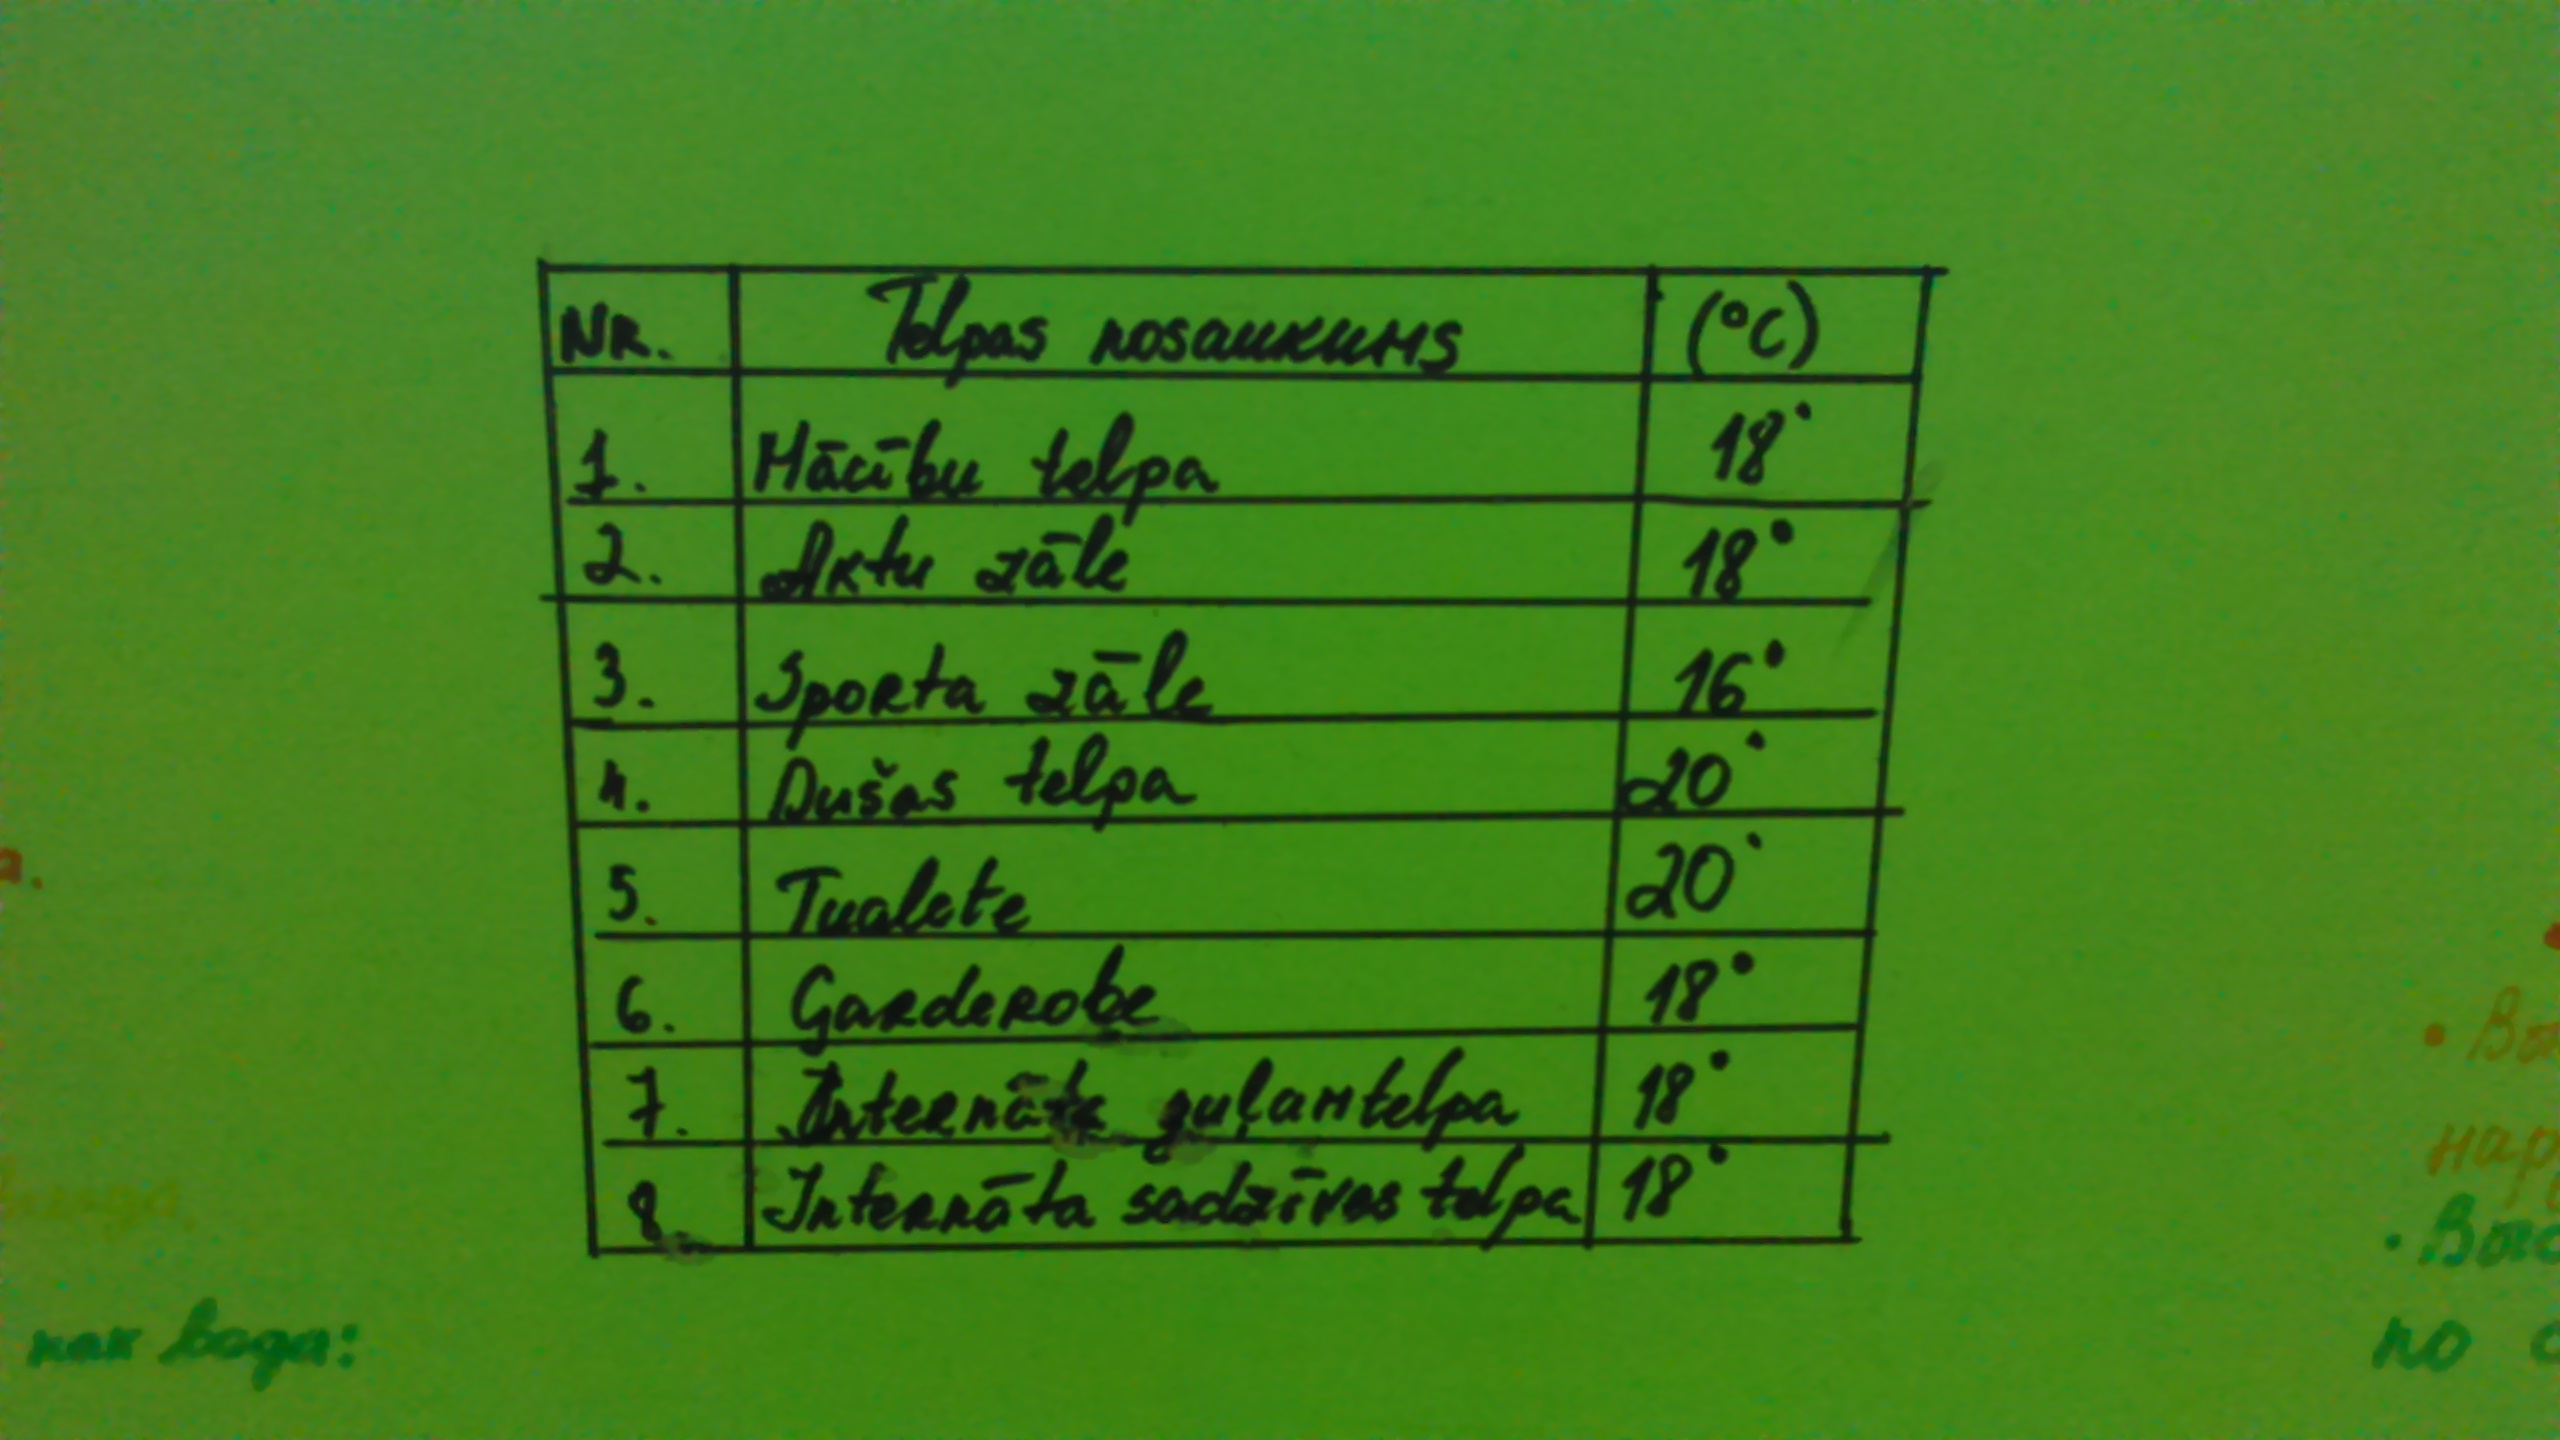 NR. Telpas nosaukums (°C)
1. Mācību telpa 18°
2. Aktu zāle 18°
3. Sporta zāle 16°
4. Dušas telpa 20°
5. Tualete 20°
6. Garderobe 18°
7. Internāta guļamtelpa 18°
8. Internāta sadzīves telpa 18°
а.
как вода:
по